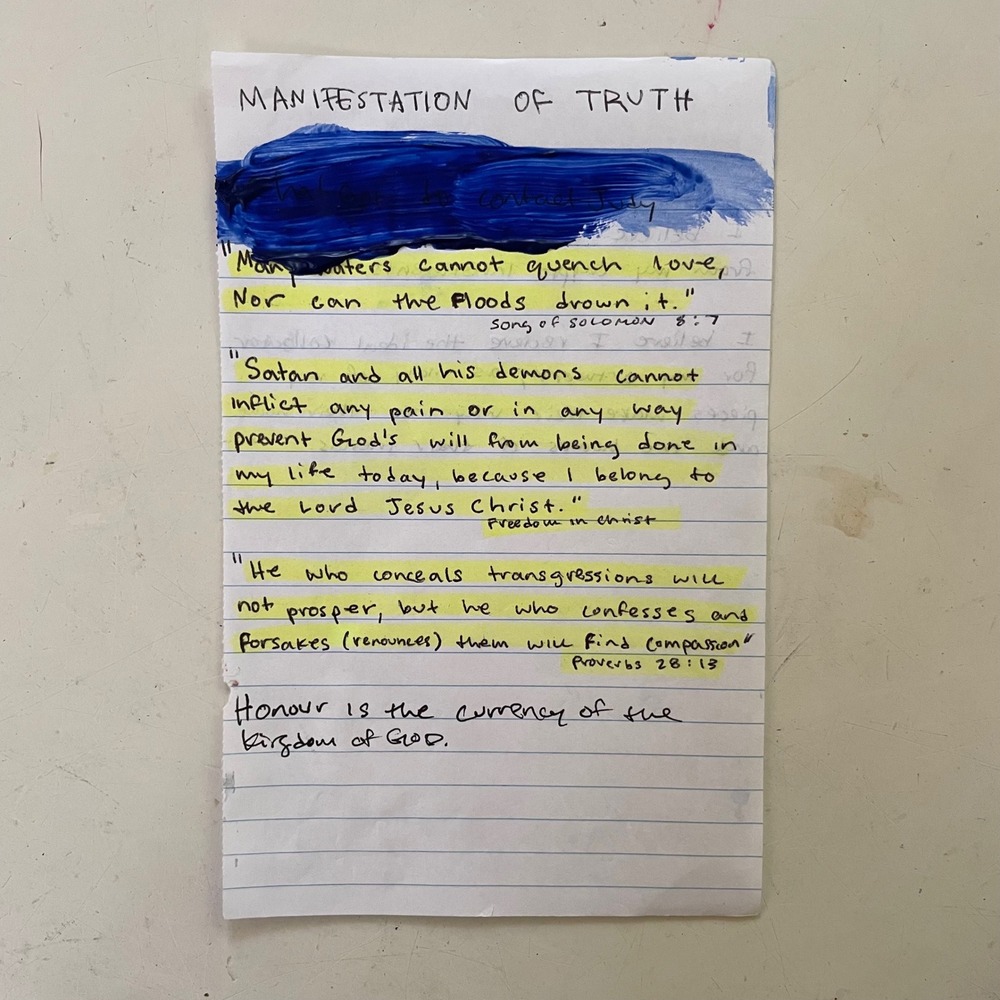 MANIFESTATION OF TRUTH
to contact Judy
"Many waters cannot quench love,
Nor can the floods drown it."
Song of SOLOMON 8:7
"Satan and all his demons cannot
inflict any pain or in any way
prevent God's will from being done in
my life today, because I belong to
the Lord Jesus Christ."
Freedom in Christ
"He who conceals transgressions will
not prosper, but he who confesses and
forsakes (renounces) them will find compassion"
Proverbs 28:13
Honour is the currency of the
kingdom of GOD.